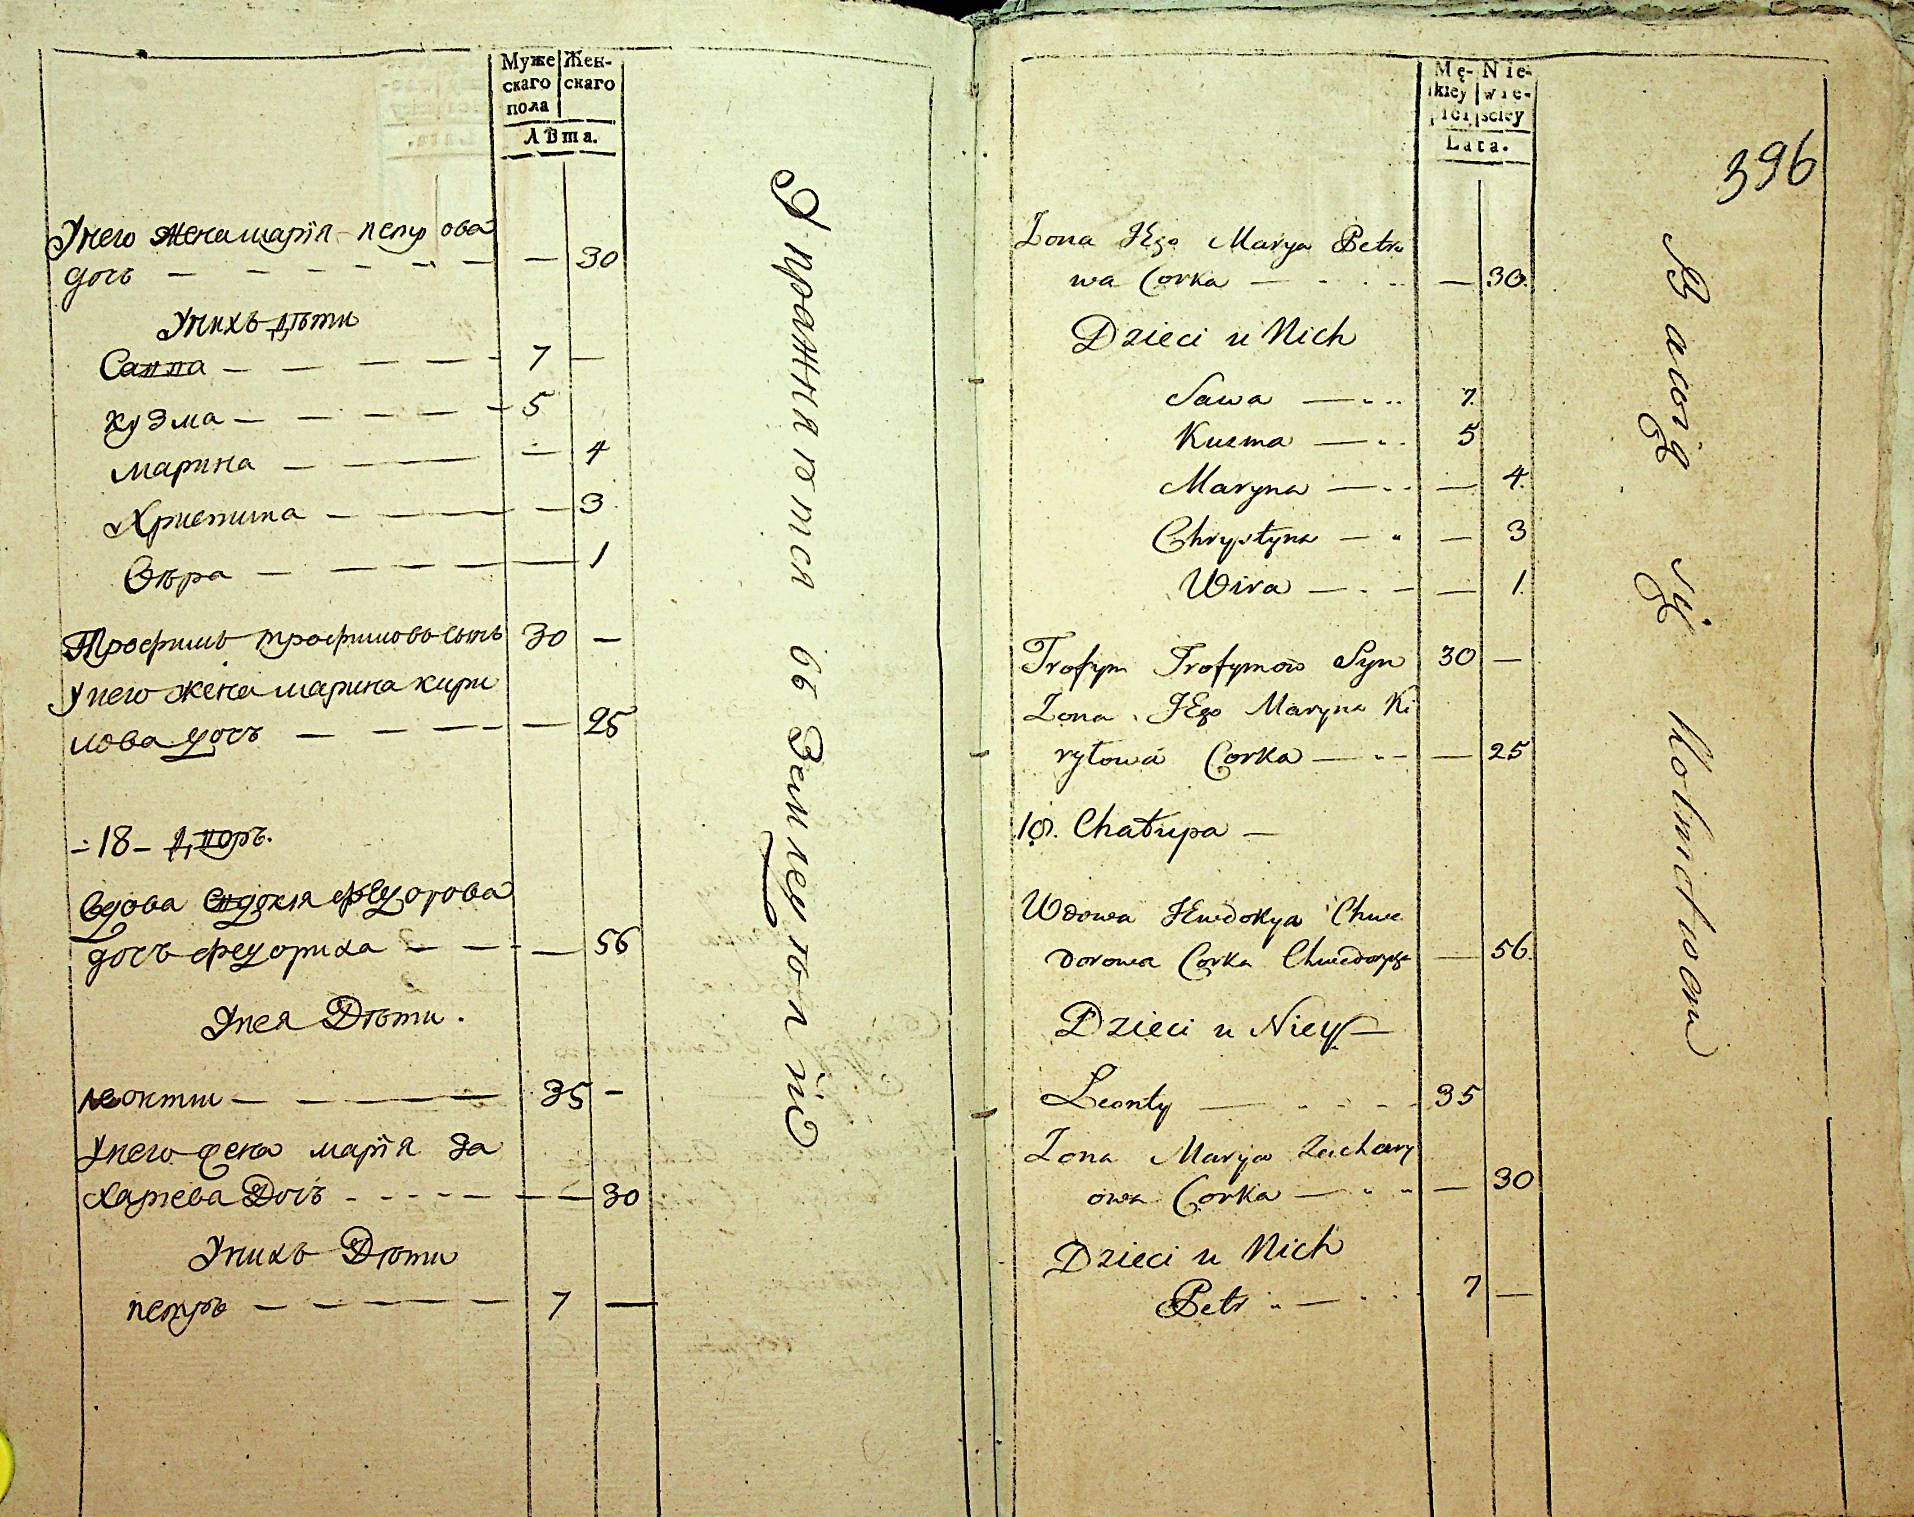 Муже Жен-
скаго скаго
пола
Лѣта.
Унего жена марїя петрова
дочь — — — — — — — 30
Унихъ дѣти
Савва — — — — 7 —
кузма — — — — — 5
марина — — — — — 4
Христина — — — — — 3
Вѣра — — — — — 1
Трофимъ трофимовъ сынъ 30 —
Унего жена марина кири
лова дочь — — — — — 25
- 18 - дворъ.
Вдова Евдокия федорова
дочь федориха — — — — 56
Унея Дѣти.
леонти — — — — 35 —
Унего жена марїя за
харїева Дочь - - - - — — — 30
Унихъ Дѣти
петръ — — — — — 7 —
Упражняется въ Земледѣлїи
Mę- Nie-
skiey wie-
płci sciey
Lata.
396
Zona JEgo Marya Petro
wa Corka — — 30.
Dzieci u Nich
Sawa — 7.
Kuzma — 5
Maryna — — 4.
Chrystyna — — 3
Wira — — — 1.
Trofym Trofymow Syn 30 —
Zona JEgo Maryna Ki
ryłowa Corka — — 25
18. Chałupa —
Wdowa JEwdokya Chwe
dorowa Corka Chwedorycha — 56.
Dzieci u Niey —
Leonty — 35
Zona Marya Zachary
owa Corka — — 30
Dzieci u Nich
Petr — 7 —
Bawią się Rolnictwem